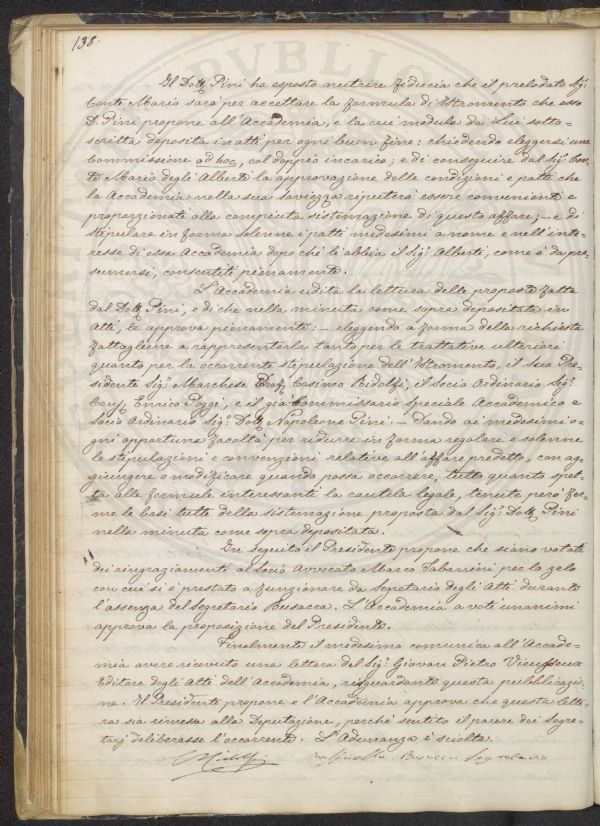 138.
Il Dott. Pini ha esposto nutrire fiducia che il prelodato Sig.
Conte Mario sarà per accettare la formula di Istromento che esso
D. Pini propone all'Accademia, e la cui modula da Lui sotto-
scritta deposita in atti per ogni buon fine: chiedendo eleggersi una
Commissione ad hoc, col doppio incarico; e di conseguire dal Sig. Con-
te Mario degli Alberti la approvazione delle condizioni e patti che
la Accademia nella sua saviezza riputerà essere convenienti e
proporzionate alla compiuta sistemazione di questo affare; – e di
stipulare in forma solenne i patti medesimi a nome e nell'inte-
resse di essa Accademia dopo ché le abbia il Sig. Alberti, come è da pre-
sumersi, consentiti pienamente.
L'Accademia udita la lettura delle proposte fatte
dal Dott. Pini, e di che nella minuta come sopra depositata in
Atti, le approva pienamente: – eleggendo a forma della richiesta
fattagliene a rappresentarla tanto per le trattative ulteriori
quanto per la occorrente stipulazione dell'Istromento, il suo Pre-
sidente Sig. Marchese Prof. Cosimo Ridolfi, il Socio Ordinario Sig.
Cons. Enrico Poggi, e il già Commissario speciale Accademico e
Socio Ordinario Sig. Dott. Napoleone Pini. – Dando ai medesimi o-
gni opportuna facoltà per ridurre in forma regolare e solenne
le stipulazioni e convenzioni relative all'affare predetto, con ag-
giungere o modificare quando possa occorrere, tutto quanto spet-
ta alle formule interessanti la cautela legale, tenute però fer-
me le basi tutte della sistemazione proposta dal Sig. Dott. Pini
nella minuta come sopra depositata.
In seguito il Presidente propone che siano votati
dei ringraziamenti al Socio Avvocato Marco Tabarrini per lo zelo
con cui si è prestato a funzionare da Segretario degli Atti durante
l'assenza del Segretario Busacca. L'Accademia a voti unanimi
approva la proposizione del Presidente.
Finalmente il medesimo comunica all'Accade-
mia avere ricevuto una lettera del Sig. Giovan Pietro Vieusseux
Editore degli Atti dell'Accademia, risguardante questa pubblicazio-
ne. Il Presidente propone e l'Accademia approva che questa lette-
ra sia rimessa alla Deputazione, perché sentito il parere dei Segre-
tarj deliberasse l'occorrente. L'Adunanza è sciolta.
CRidolfi Busacca Segretario